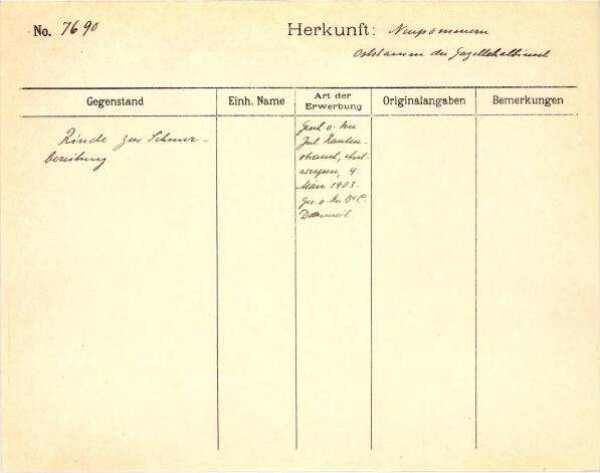 No. 7690
Herkunft: Neupommern
Oststamm der Gazellehalbinsel
Gegenstand
Einh. Name
Art der
Erwerbung
Originalangaben
Bemerkungen
Rinde zur Schnur-
bereitung
Gesch. v. Hrn
Jul.
4.
März 1903.
Ges. v. Hr. Dr C.